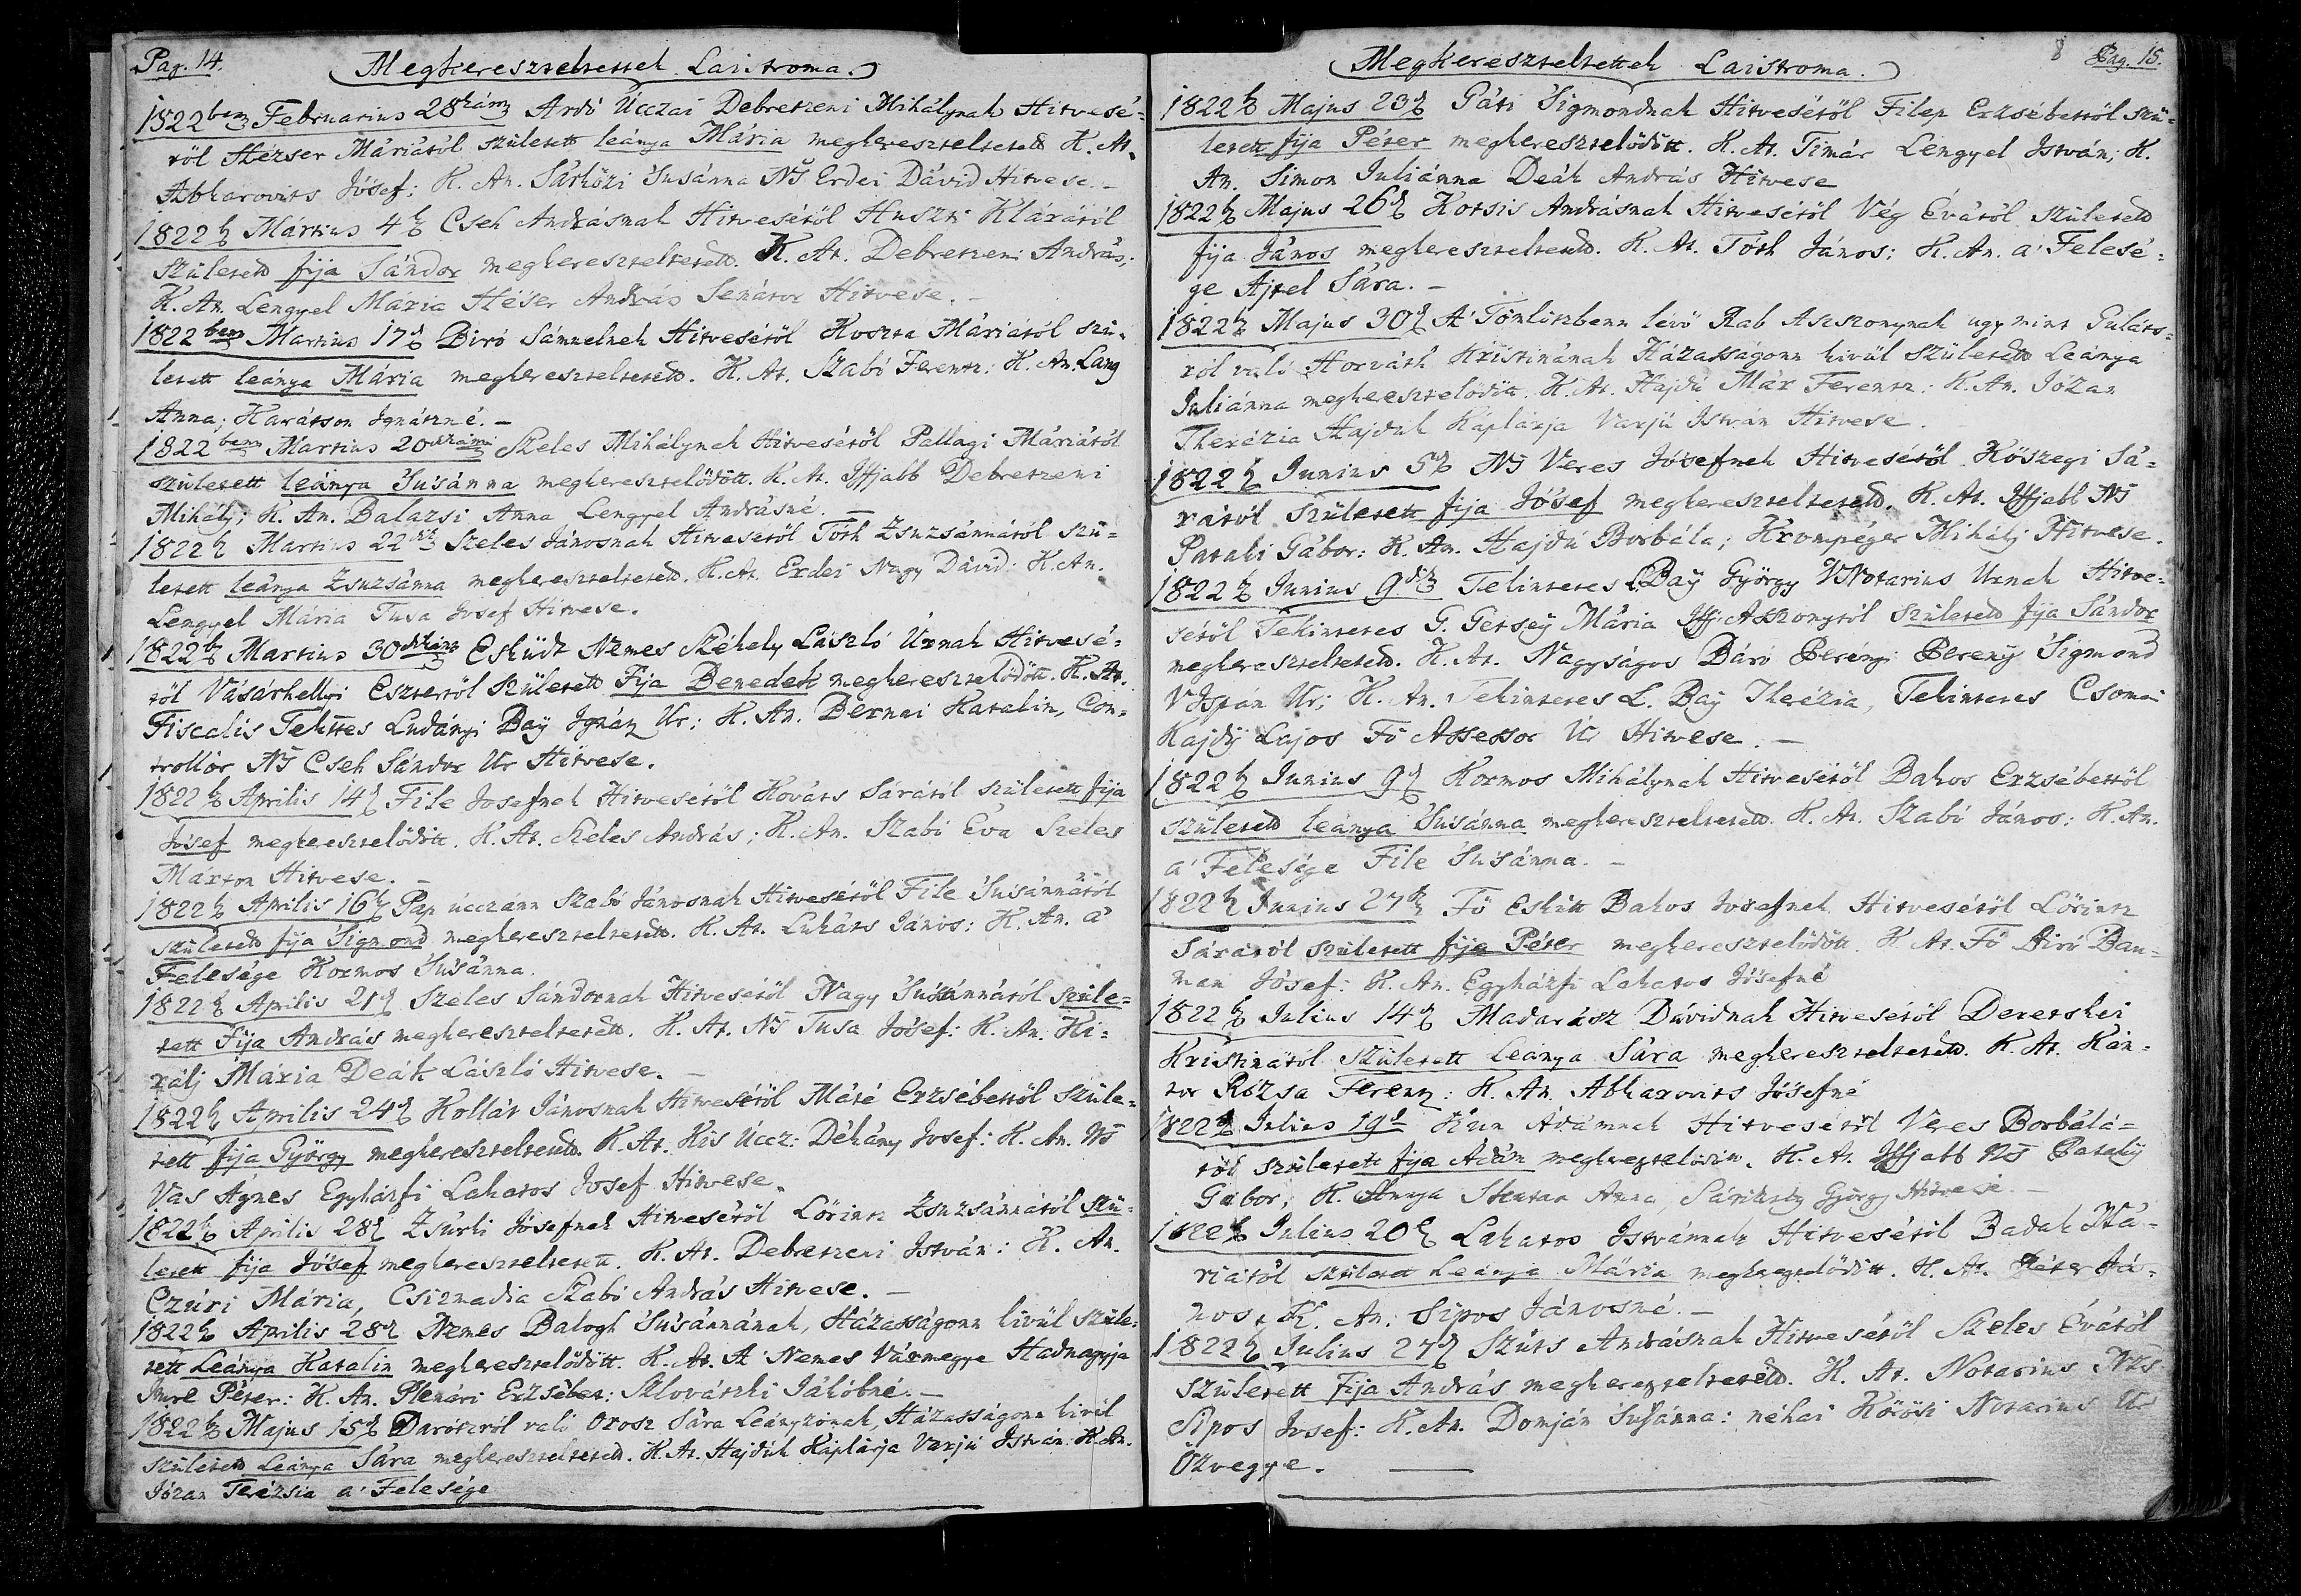 Pag. 14.
Megkereszteltettek Laistroma.
1822ben Februarius 28kán Ardó Úcczai Debretzeni Mihálynak Hitvesé-
től Hézser Máriától született leánya Mária megkereszteltetett K. At.
Abkarovits Jósef; K. An. Sárközi Susánna NS Erdei Dávid Hitvese. -
1822b Mártius 4k Cseh Andrásnak Hitvesétől Huszti Klárától
született fija Sándor megkereszteltetett. K. At. Debretzeni András;
K. An. Lengyel Mária Héser András Senátor Hitvese. -
1822ben Martius 17k Biró Sámuelnek Hitvesétől Koszta Máriától szü-
letett leánya Mária megkereszteltetett. K. At. Szabó Ferentz: K. An. Lang
Anna; Karátson Ignátzné. -
1822ben Martius 20dikán Szeles Mihálynek Hitvesétől Pallagi Máriától
született leánya Susánna megkeresztelődött. K. At. Iffjabb Debretzeni
Mihálj; K. An. Balázsi Anna Lengyel Andrásné. -
1822b Martius 22dik Szeles Jánosnak Hitvesétől Tóth Zsuzsánnától szü-
letett leánya Zsuzsánna megkereszteltetett. K. At. Erdei Nagy Dávid: K. An.
Lengyel Mária Tusa Josef Hitvese.
1822b Martius 30dikán Esküdt Nemes Székely László Urnak Hitvesé-
től Vásárhellyi Esztertől született Fija Benedek megkeresztelődött. K. At.
Fiscalis Tekttes Ludányi Baÿ Ignátz Ur; K. An. Bernai Katalin, Con-
trollór NS Cseh Sándor Ur Hitvese.
1822b Aprilis 14k File Josefnek Hitvesétől Kováts Sárától született fija
Jósef megkeresztelődött. K. At. Szeles András; K. An. Szabó Éva Szeles
Márton Hitvese. -
1822b Aprilis 16k Pap úcczánn Szabó Jánosnak Hitvesétől File Susánnától
született fija Sigmond megkereszteltetett. K. At. Lukáts János: K. An. a'
Felesége Kormos Susánna.
1822b Aprilis 21k Szeles Sándornak Hitvesétől Nagy Susánnától szüle-
tett Fija András megkereszteltetett. K. At. NS Tusa Jósef: K. An. Ki-
rálj Mária Deák László Hitvese. -
1822b Aprilis 24k Kollár Jánosnak Hitvesétől Máté Erzsébettől szüle-
tett fija György megkereszteltetett. K. At. Kis Úcz: Dékány Josef: K. An. NS
Vas Ágnes Egyházfi Lakatos Josef Hitvese.
1822b Aprilis 28k Zsurki Jósefnek Hitvesétől Lörintz Zsuzsánnától szü-
letett fija Jósef megkereszteltetett. K. At. Debretzeni István: K. An.
Czúri Mária, Csizmadia Szabó András Hitvese. -
1822b Aprilis 28k Nemes Balogh Susánnának, Házasságonn kivül szüle-
tett Leánya Katalin megkeresztelődött. K. At. A' Nemes Vármegye Hadnagyja
Imre Péter: K. An. Plenári Erzsébet: Slováski Jákóbné. -
1822b Majus 15k Darótzról való Orosz Sára Leányzónak, Házasságonn kivül
született Leánya Sára megkereszteltetett. K. At. Hajdúk Káplárja Varjú István: K. An.
Józan Terézsia a' Felesége
8 Pag. 15.
Megkereszteltettek Laistroma.
1822b Majus 23k Páti Sigmondnak Hitvesétől Filep Erzsébettől szü-
letett fija Péter megkeresztelődött. K. At. Timár Lengyel István; K.
An. Simon Juliánna Deák András Hitvese
1822b Majus 26k Kotsis Andrásnak Hitvesétől Vég Évától született
fija János megkereszteltetett. K. At. Tóth János: K. An. a' Felesé-
ge Ajtel Sára. -
1822b Majus 30k A' Tömlötzbenn lévő Rab Aszszonynak ugy mint Gulács-
ról való Horváth Kristinának Házasságonn kivül született Leánya
Juliánna megkeresztelődött. K. At. Hajdú Már Ferentz: K. An. Józan
Therézia Hajduk Káplárja Varjú István Hitvese.
1822b Junius 5k NS Veres Jósefnek Hitvesétől Kőszegi Sá-
rától született fija Jósef megkereszteltetett. K. At. Iffjabb NS
Pataki Gábor: K. An. Hajdú Borbála; Krompéger Mihálj Hitvese.
1822b Junius 9dik Tekintetes Baÿ György VNotarius Urnak Hitve-
sétől Tekintetes G. Getseÿ Mária Iffi Asszonytól született fija Sándor
megkereszteltetett. K. At. Nagyságos Báró Perényi Perenÿ Sigmond
VIspán Ur; K. An. Tekintetes L. Baÿ Therézia, Tekintetes Csomai
Kajdÿ Lajos Fő Assessor Úr Hitvese. -
1822b Junius 9k Kormos Mihálynak Hitvesétől Bakos Erzsébettől
született leánya Susánna megkereszteltetett. K. At. Szabó János: K. An.
a' Felesége File Susánna. -
1822b Junius 27k Fő Esküt Bakos Josefnek Hitvesétől Lőrintz
Sárától született fija Péter megkeresztelődött. K. At. Fő Biró Bau-
man Jósef: K. An. Egyházfi Lakatos Jósefné
1822b Julius 14k Madarász Dávidnak Hitvesétől Deretskei
Kristinától született Leánya Sára megkereszteltetett. K. At. Kán-
tor Rózsa Ferentz: K. An. Abkarovits Jósefné
1822b Julius 19k Kun Ádámnak Hitvesétől Veres Borbálá-
tól született fija Ádám megkeresztelődött. K. At. Iffjabb NS Patakÿ
Gábor; K. Annya Anna, György Hitvese. -
1822b Julius 20k Lakatos Istvánnak Hitvesétől Badak Má-
riától született Leánya Mária megkeresztelődött. K. At. Péter Já-
nos, K. An. Sipos Jánosné. -
1822b Julius 27k Szűts Andrásnak Hitvesétől Szeles Évától
született Fija András megkereszteltetett. K. At. Notarius NS
Sipos Josef: K. An. Domján Susánna: néhai Körösi Notarius Ur
Özvegye.